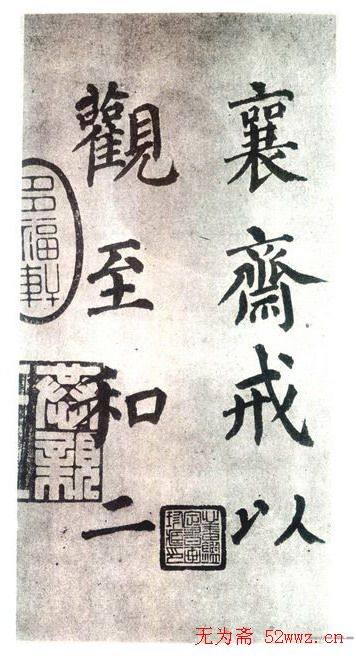 襄齋戒以
觀至和二
多福軒
无为斋 52wwz.cn